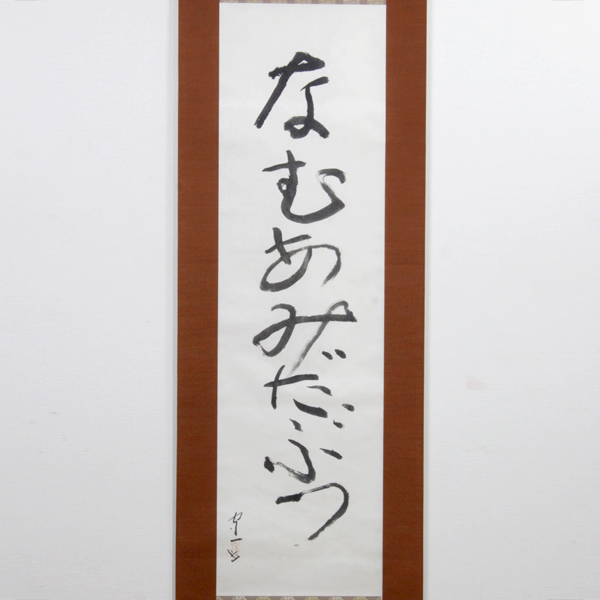 なむあみだぶつ